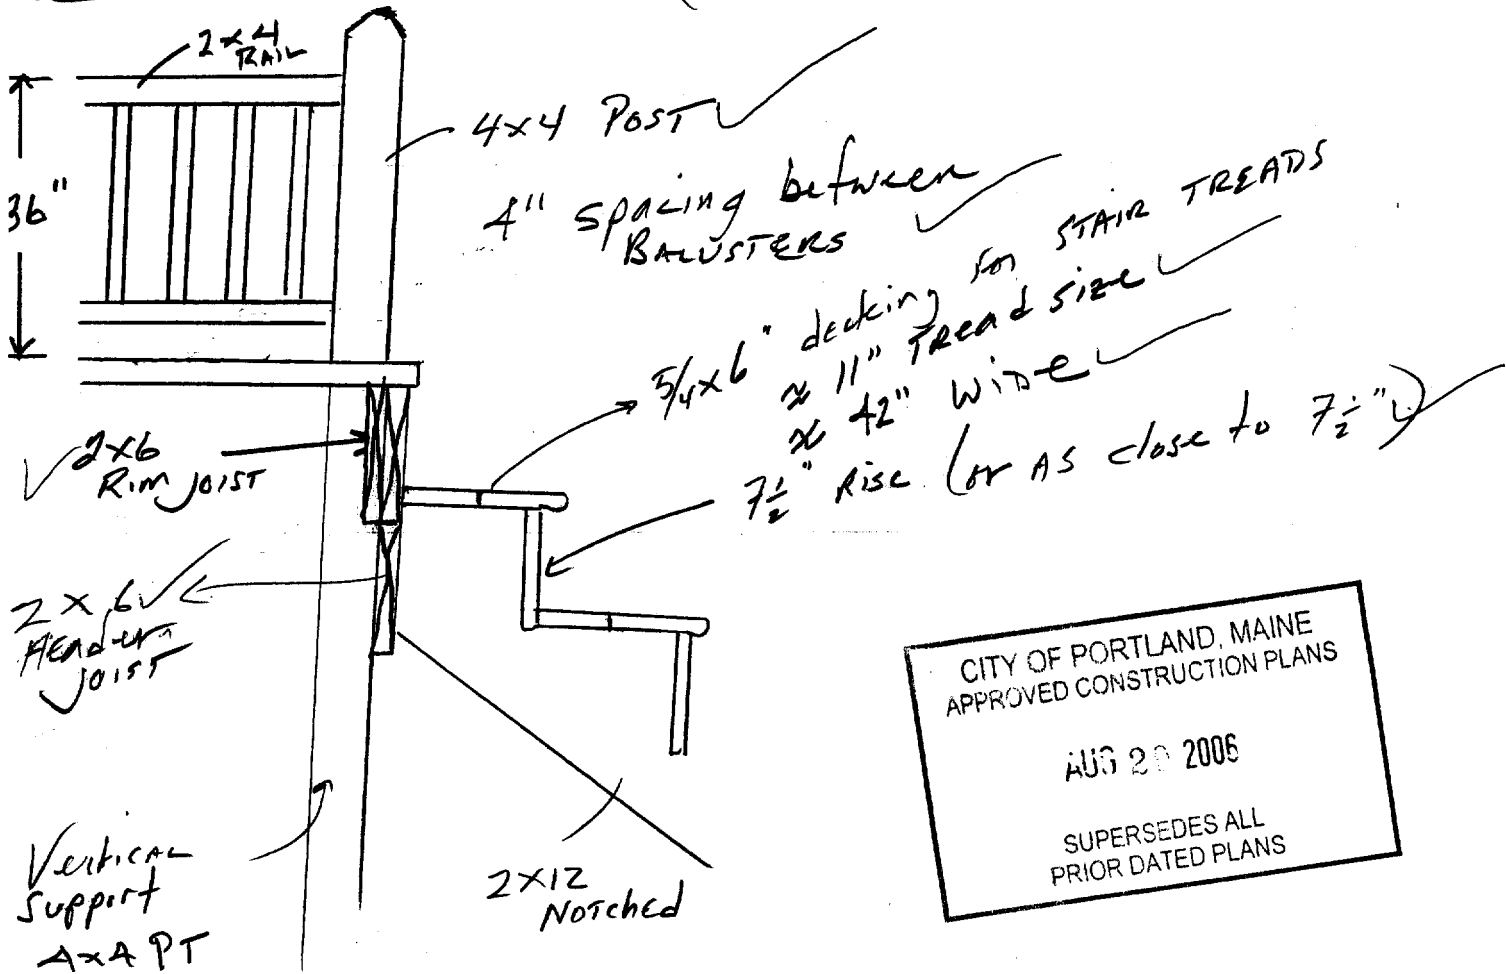 2x4
RAIL
36"
4x4 POST
4" spacing between
BALUSTERS
5/4x6" decking for STAIR TREADS
≈ 11" TRead size
≈ 42" WIDe
7½" Rise (or AS close to 7½")
2x6
Rim JOIST
2x6
Header
JOIST
Vertical
Support
4x4 PT
2x12
Notched
CITY OF PORTLAND, MAINE
APPROVED CONSTRUCTION PLANS
AUG 2 2006
SUPERSEDES ALL
PRIOR DATED PLANS